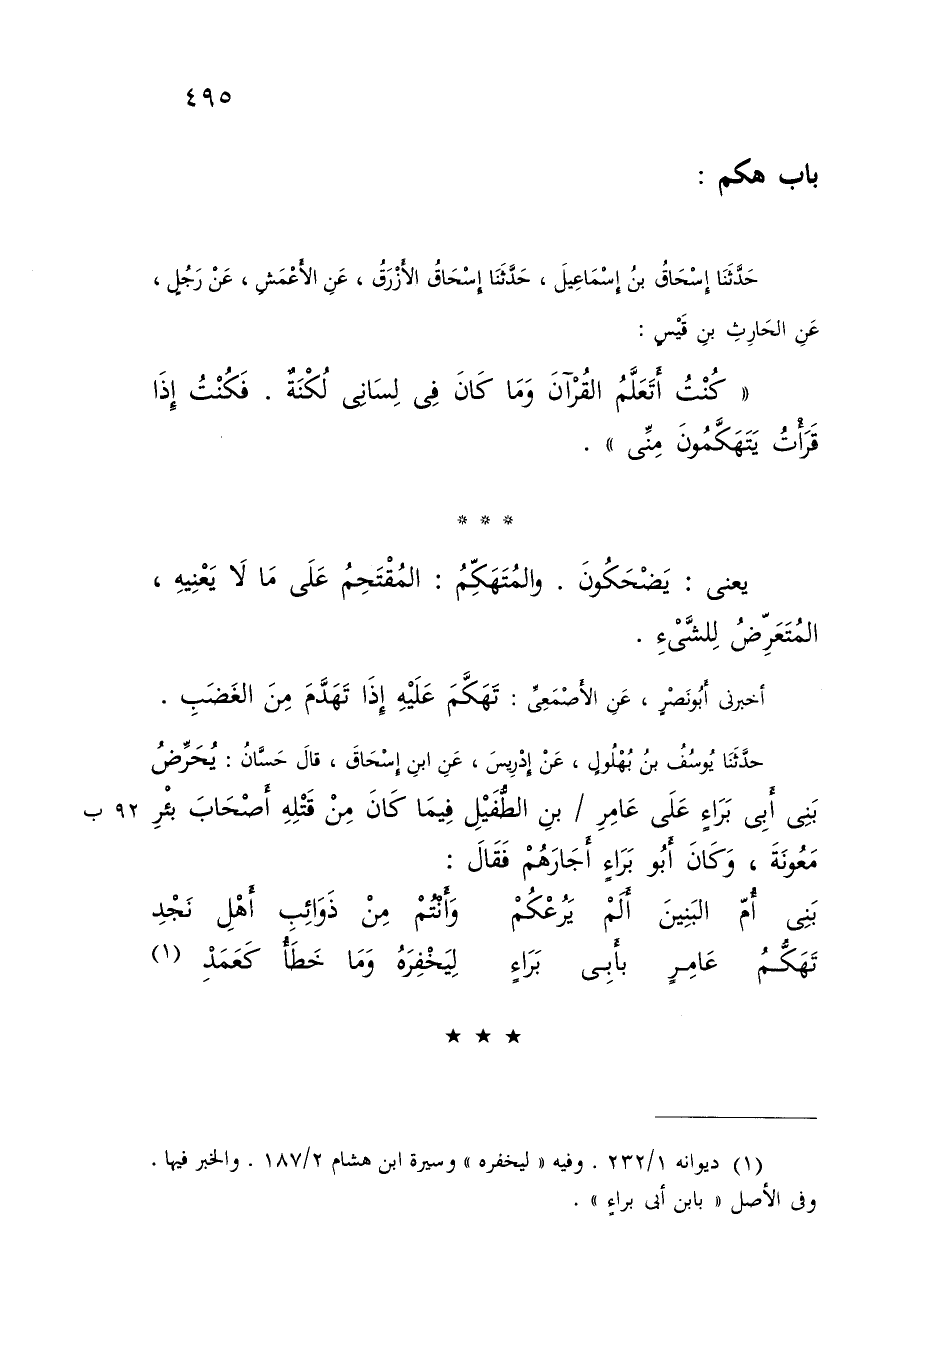 ٤٩٥
باب هكم :
حَدَّثَنَا إِسْحَاقُ بنُ إِسْمَاعِيلَ ، حَدَّثَنَا إِسْحَاقُ الأَزْرَقُ ، عَنِ الأَعْمَشِ ، عَنْ رَجُلٍ ،
عَنِ الحَارِثِ بنِ قَيْسٍ :
« كُنْتُ أَتَعَلَّمُ القُرْآنَ وَمَا كَانَ فِى لِسَانِى لُكْنَةٌ . فَكُنْتُ إِذَا
قَرَأْتُ يَتَهَكَّمُونَ مِنِّى » .
* * *
يعنى : يَضْحَكُونَ . والمُتَهَكِّمُ : المُقْتَحِمُ عَلَى مَا لَا يَعْنِيهِ ،
المُتَعَرِّضُ لِلشَّىْءِ .
أخبرنى أَبُونَصْرٍ ، عَنِ الأَصْمَعِىِّ : تَهَكَّمَ عَلَيْهِ إِذَا تَهَدَّمَ مِنَ الغَضَبِ .
حدَّثَنَا يُوسُفُ بنُ بُهْلُولٍ ، عَنْ إِدْرِيسَ ، عَنِ ابنِ إِسْحَاقَ ، قالَ حَسَّانُ : يُحَرِّضُ
بَنِى أَبِى بَرَاءٍ عَلَى عَامِرِ / بنِ الطُّفَيْلِ فِيمَا كَانَ مِنْ قَتْلِهِ أَصْحَابَ بئْرِ ٩٢ ب
مَعُونَةَ ، وَكَانَ أَبُو بَرَاءٍ أَجَارَهُمْ فَقَالَ :
بَنِى أُمّ البَنِينَ أَلَمْ يَرُعْكُمْ وَأَنْتُمْ مِنْ ذَوَائِبِ أَهْلِ نَجْدِ
تَهَكُّمُ عَامِرٍ بأَبِى بَرَاءٍ لِيَخْفِرَهُ وَمَا خَطَأٌ كَعَمَدْ (١)
★ ★ ★
(١) ديوانه ٢٣٢/١ . وفيه « ليخفره » وسيرة ابن هشام ١٨٧/٢ . والخبر فيها .
وفى الأصل « بابن أبى براءٍ » .